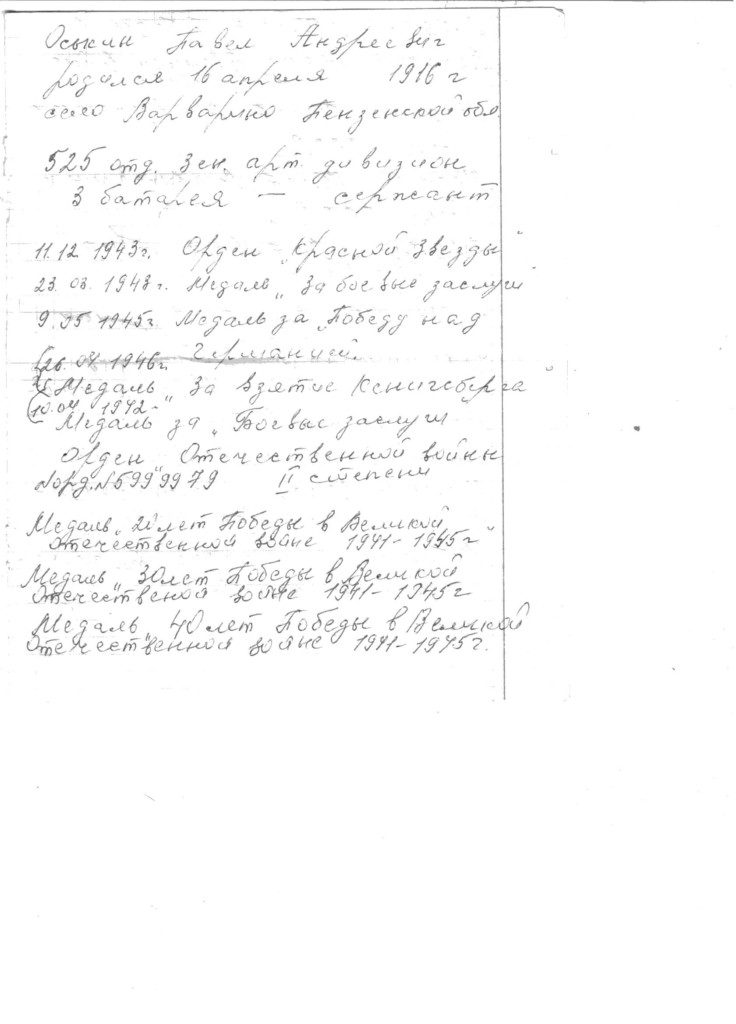 Оськин Павел Андреевич
родился 16 апреля 1916 г
село Варварино Пензенской обл
525 отд. зен. арт. дивизион
3 батарея — сержант
11.12 1943г. Орден „Красной Звезды"
23. 03. 1943г. Медаль „За боевые заслуги"
9. 05 1945г. Медаль за „Победу над
Германией.
(26. 04 1946г.
Медаль „За взятие Кенигсберга"
(10.04 1942-
Медаль за „Боевые заслуги"
Орден „Отечественной войны
№орд. №5999979 II степени
Медаль „20 лет Победы в Великой
Отечественной войне 1941-1945г"
Медаль „30 лет Победы в Великой
Отечественной войне 1941-1945г
Медаль „40 лет Победы в Великой
Отечественной войне 1941-1945г.